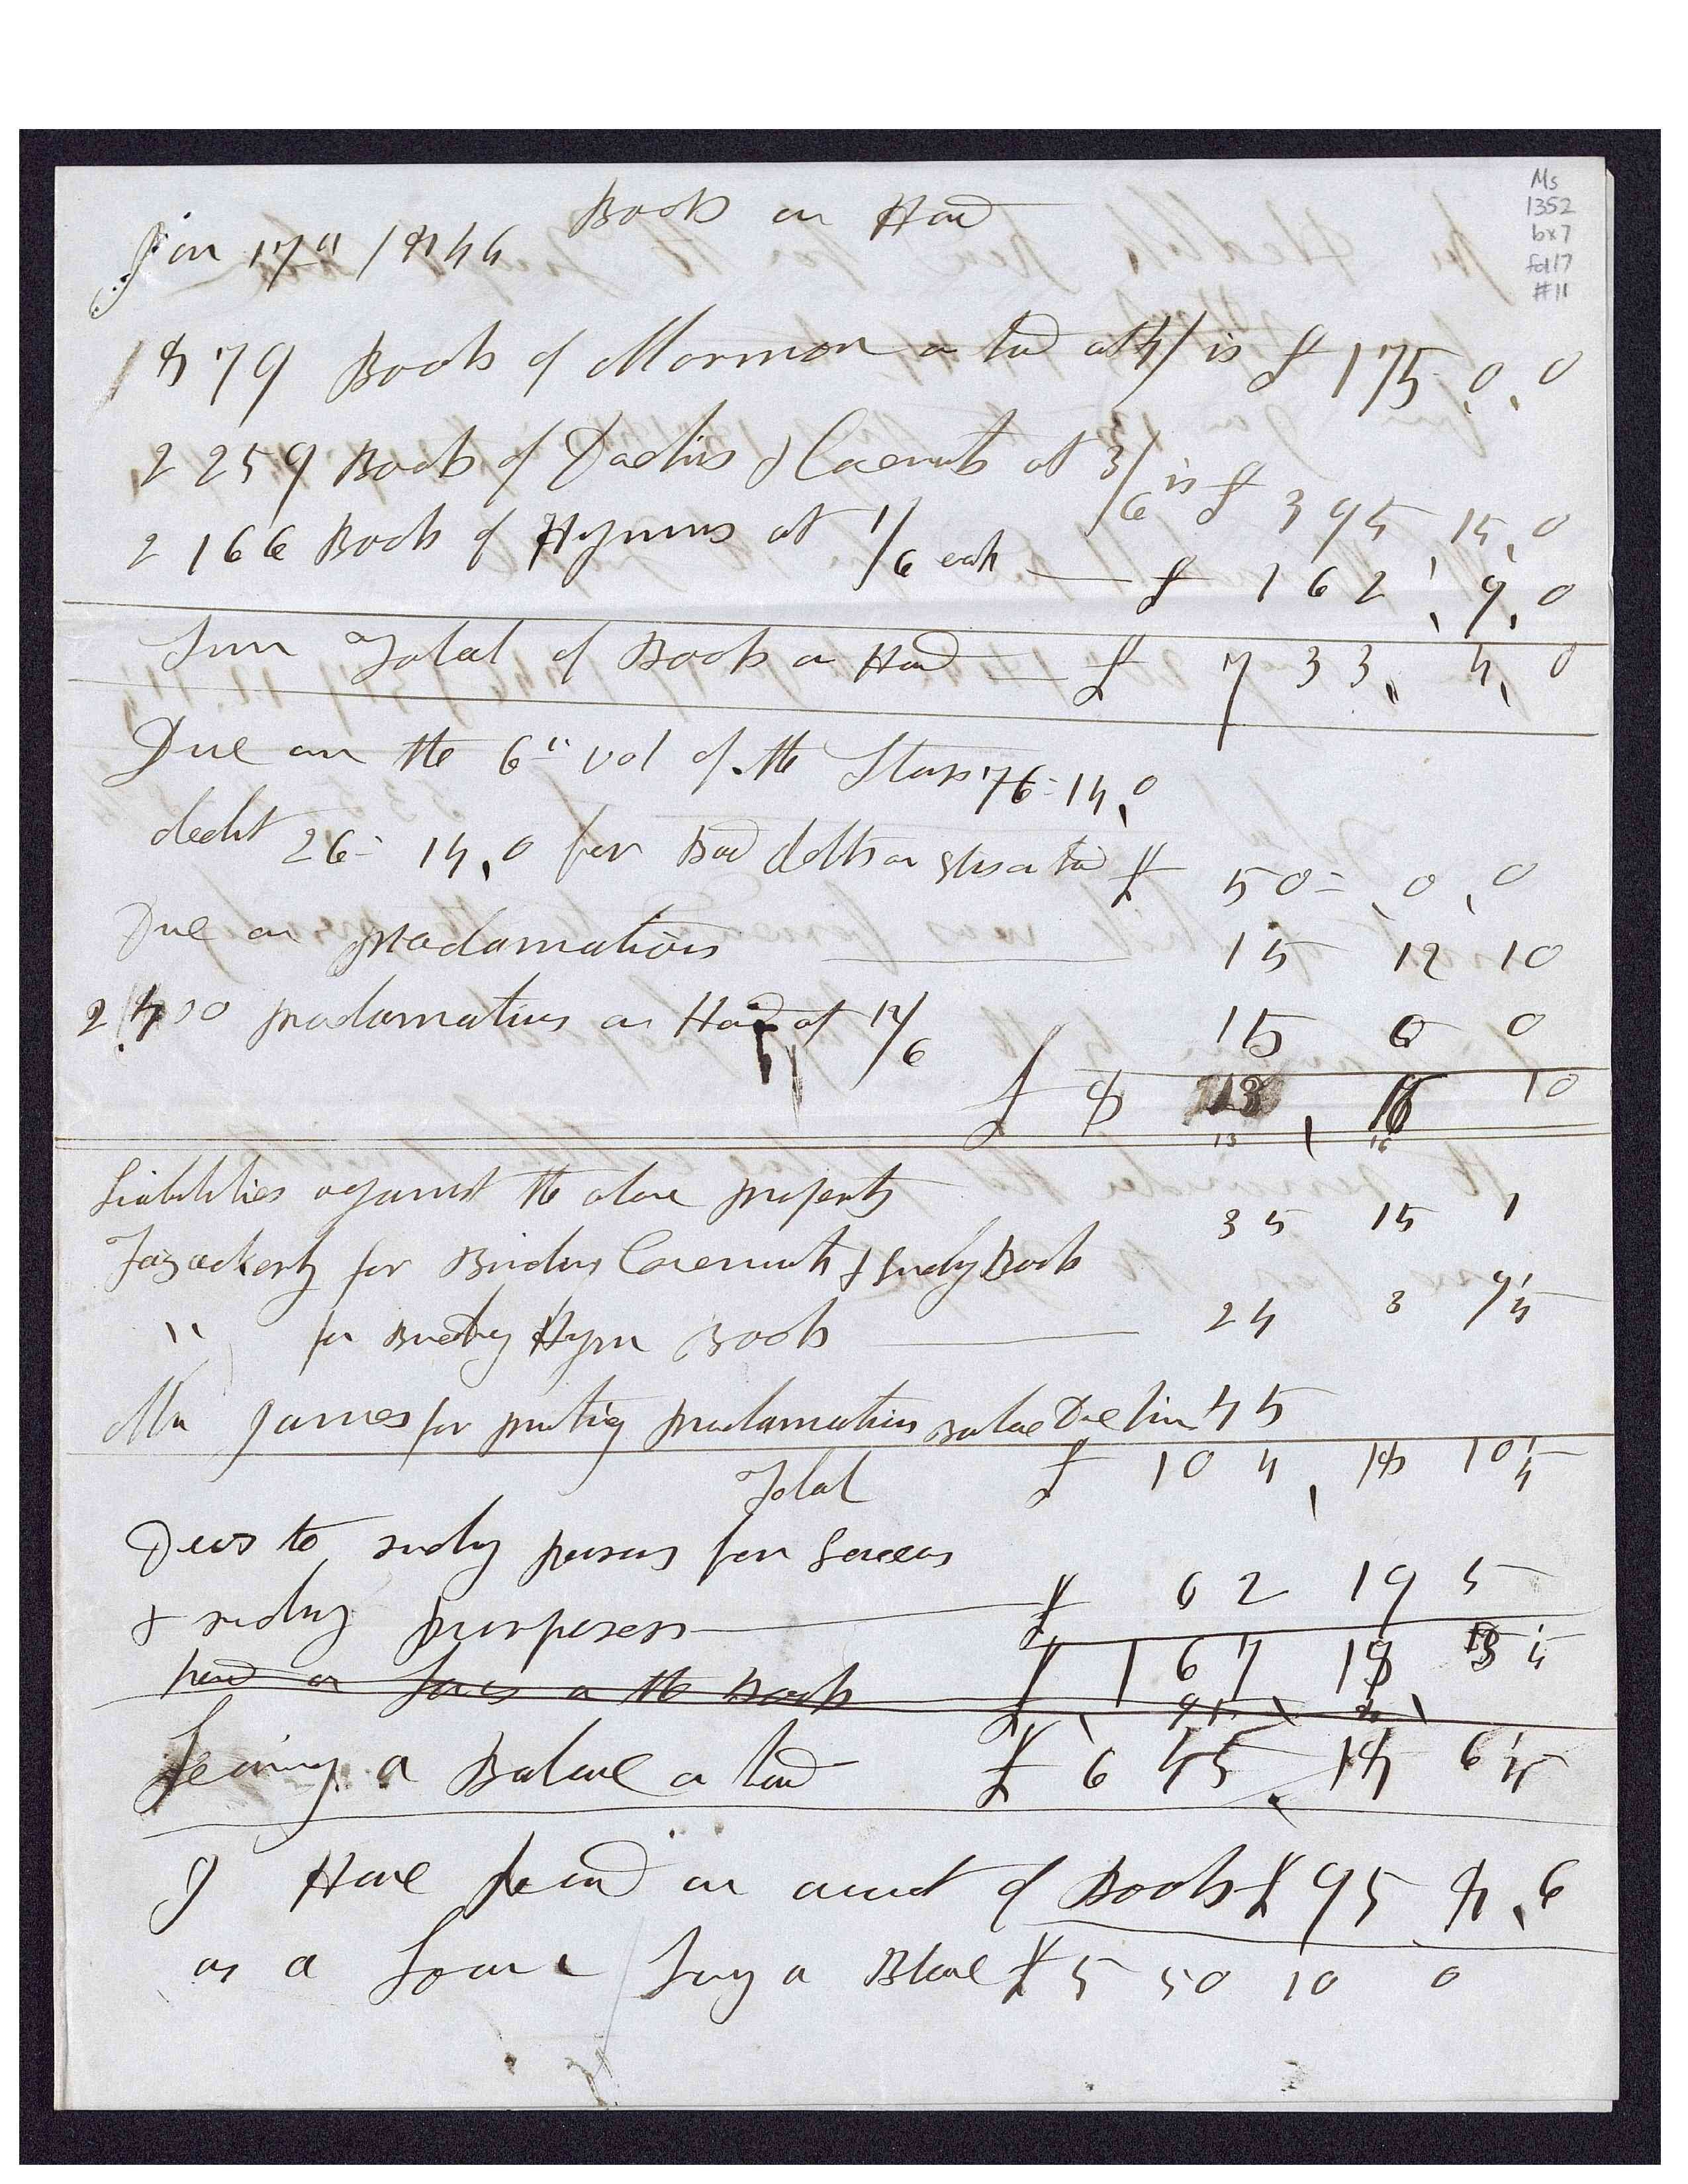 Ms
1352
bx7
fd17
#11
Books on Hand
Jan 17" 1846
1879 Books of Mormon on hand at 4/ is £ 175. 0. 0
2259 Book of Doctrins & Covenants at 3/6 is £ 395. 15. 0
2166 Book of Hymns at 1/6 each — £ 162. 9. 0
Sum Total of Books on Hand — £ 733. 4. 0
Due on the 6" vol of the Stars 76-14.0
deduct 26-14.0 for Bad debts on Stars £ 50= 0. 0
Due on proclamations — 15 12 10
2400 proclamations on Hand at 12/6 15 0 0
£ 8 13. 16 10
13 16
Liabilities against the above property
Fazackerly for Binding Covenants & Sundry Books 35 15 1
" for Binding Hymn Books — 24 3 9 1/4
Mr James for printing proclamations balance Due him 45
Total £ 104. 18 10 1/4
Dues to sundry persons for
& sundry purposes — £ 62 19 5
£ 167 18 3 1/4
paid on Loans on the Books
Leaving a Balance on hand £ 645. 18 6 1/4
I Have paid on account of Books £ 95 8. 6
as a Loan Leavg a Blance £ 550 10 0